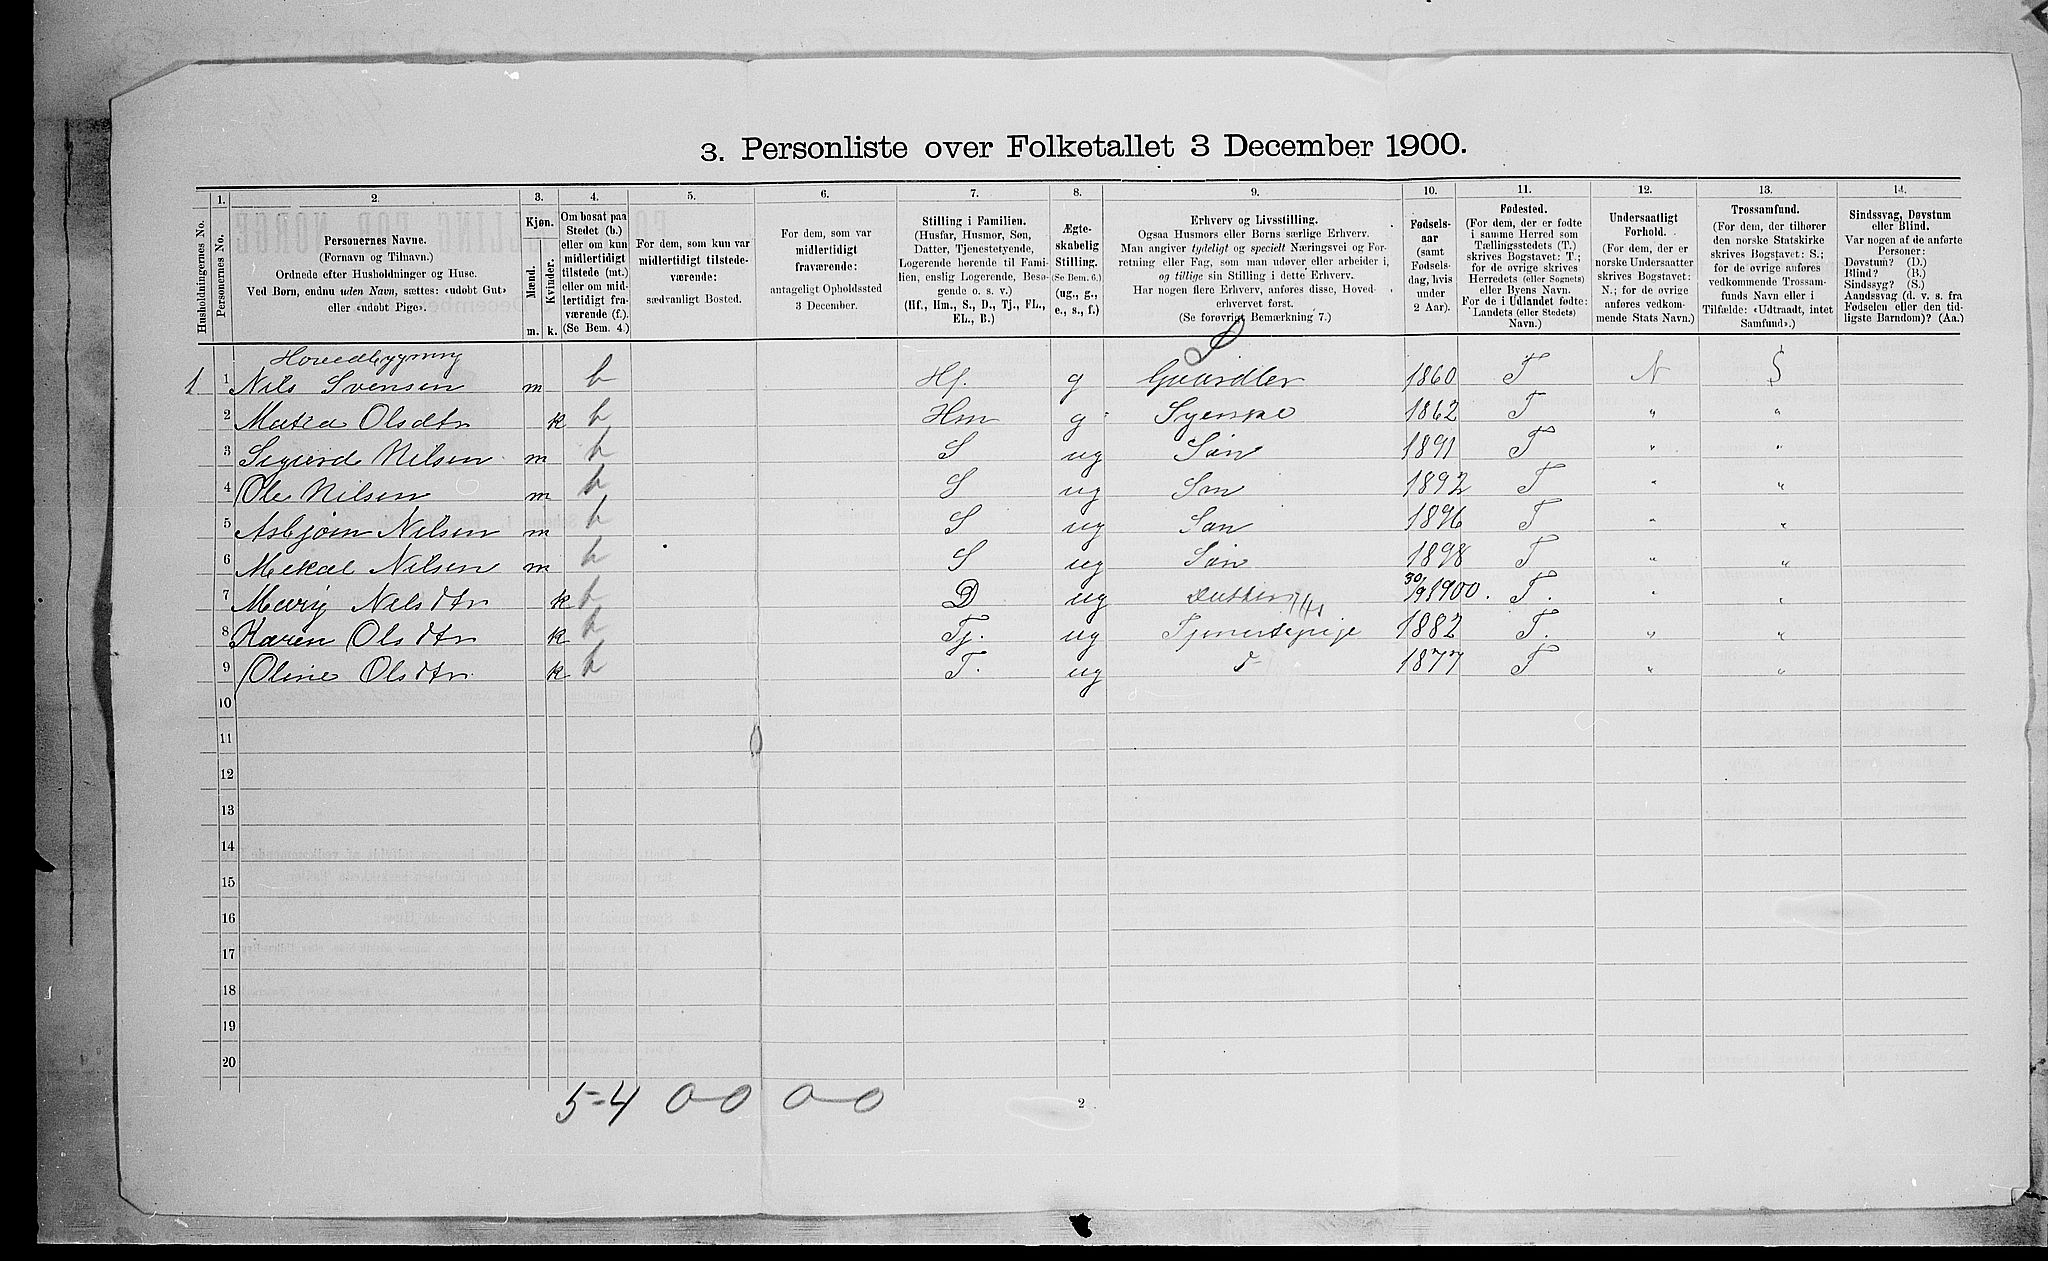 3. Personliste over Folketallet 3 December 1900.
1. 2. 3. 4. 5. 6. 7. 8. 9. 10. 11. 12. 13. 14.
Husholdningernes No.
Personernes No.
Personernes Navne.
(Fornavn og Tilnavn.)
Ordnede efter Husholdninger og Huse.
Ved Børn, endnu uden Navn, sættes: «udøbt Gut»
eller «udøbt Pige».
Kjøn.
Mænd.
Kvinder.
m. k.
Om bosat paa
Stedet (b.)
eller om kun
midlertidigt
tilstede (mt.)
eller om mid-
lertidigt fra-
værende (f.).
(Se Bem. 4.)
For dem, som kun var
midlertidigt tilstede-
værende:
sædvanligt Bosted.
For dem, som var
midlertidigt
fraværende:
antageligt Opholdssted
3 December.
Stilling i Familien.
(Husfar, Husmor, Søn,
Datter, Tjenestetyende,
Logerende hørende til Fami-
lien, enslig Logerende, Besø-
gende o. s. v.)
(Hf., Hm., S., D., Tj., FL.,
EL., B.)
Ægte-
skabelig
Stilling.
(Se Bem. 6.)
(ug., g.,
e., s., f.)
Erhverv og Livsstilling.
Ogsaa Husmors eller Børns særlige Erhverv.
Man angiver tydeligt og specielt Næringsvei og For-
retning eller Fag, som man udøver eller arbeider i,
og tillige sin Stilling i dette Erhverv.
Har nogen flere Erhverv, anføres disse, Hoved-
erhvervet først.
(Se forøvrigt Bemærkning 7.)
Fødsels-
aar
(samt
Fødsels-
dag, hvis
under
2 Aar).
Fødested.
(For dem, der er fødte
i samme Herred som
Tællingsstedets (T.)
skrives Bogstavet: T.;
for de øvrige skrives
Herredets (eller Sognets)
eller Byens Navn.
For de i Udlandet fødte:
Landets (eller Stedets)
Navn.)
Undersaatligt
Forhold.
(For dem, der er
norske Undersaatter
skrives Bogstavet:
N.; for de øvrige
anføres vedkom-
mende Stats Navn.)
Trossamfund.
(For dem, der tilhører
den norske Statskirke
skrives Bogstavet: S.;
for de øvrige anføres
vedkommende Trossam-
funds Navn eller i
Tilfælde: «Udtraadt, intet
Samfund».)
Sindssvag, Døvstum
eller Blind.
Var nogen af de anførte
Personer:
Døvstum? (D.)
Blind? (B.)
Sindssyg? (S.)
Aandssvag (d. v. s. fra
Fødselen eller den tid-
ligste Barndom)? (Aa.)
Hovedbygning
1 1 Nils Svensen m b Hf. g Gaardbr 1860 T N S
2 Matea Olsdtr k b Hm g Syerske 1862 T " "
3 Sigurd Nilsen m b S ug Søn 1891 T " "
4 Ole Nilsen m b S ug Søn 1892 T " "
5 Asbjørn Nilsen m b S ug Søn 1896 T " "
6 Mekal Nilsen m b S ug Søn 1898 T " "
7 Marij Nilsdtr k b D ug Datter 30/9 1900. T. " "
8 Karen Olsdtr k b Tj. ug Tjenestepige 1882 T. " "
9 Oline Olsdtr k b T. ug d- 1877 T " "
10
11
12
13
14
15
16
17
18
19
20
5-4 0-0 0-0
2